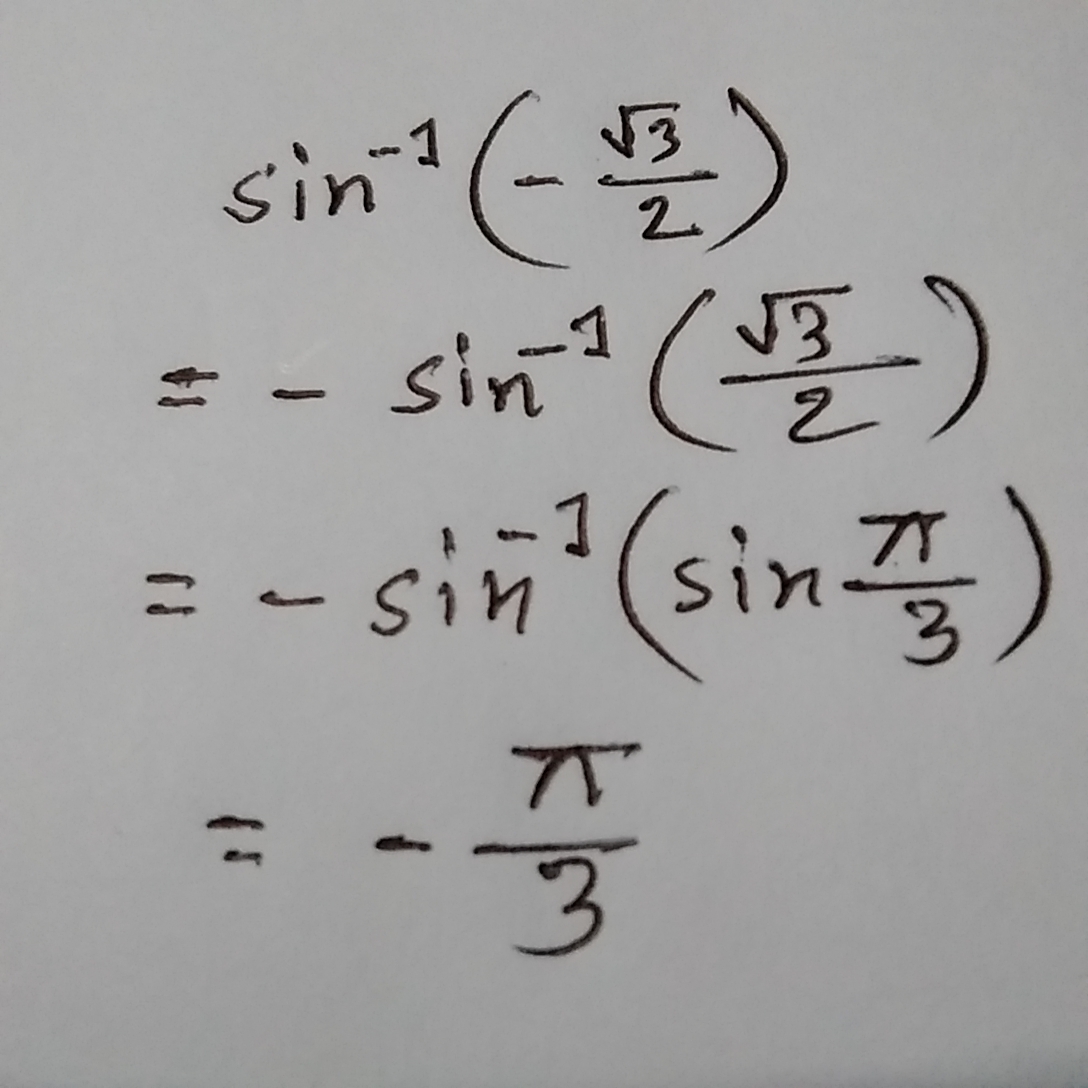 sin⁻¹(-√3/2)
= - sin⁻¹(√3/2)
= - sin⁻¹(sin π/3)
= - π/3